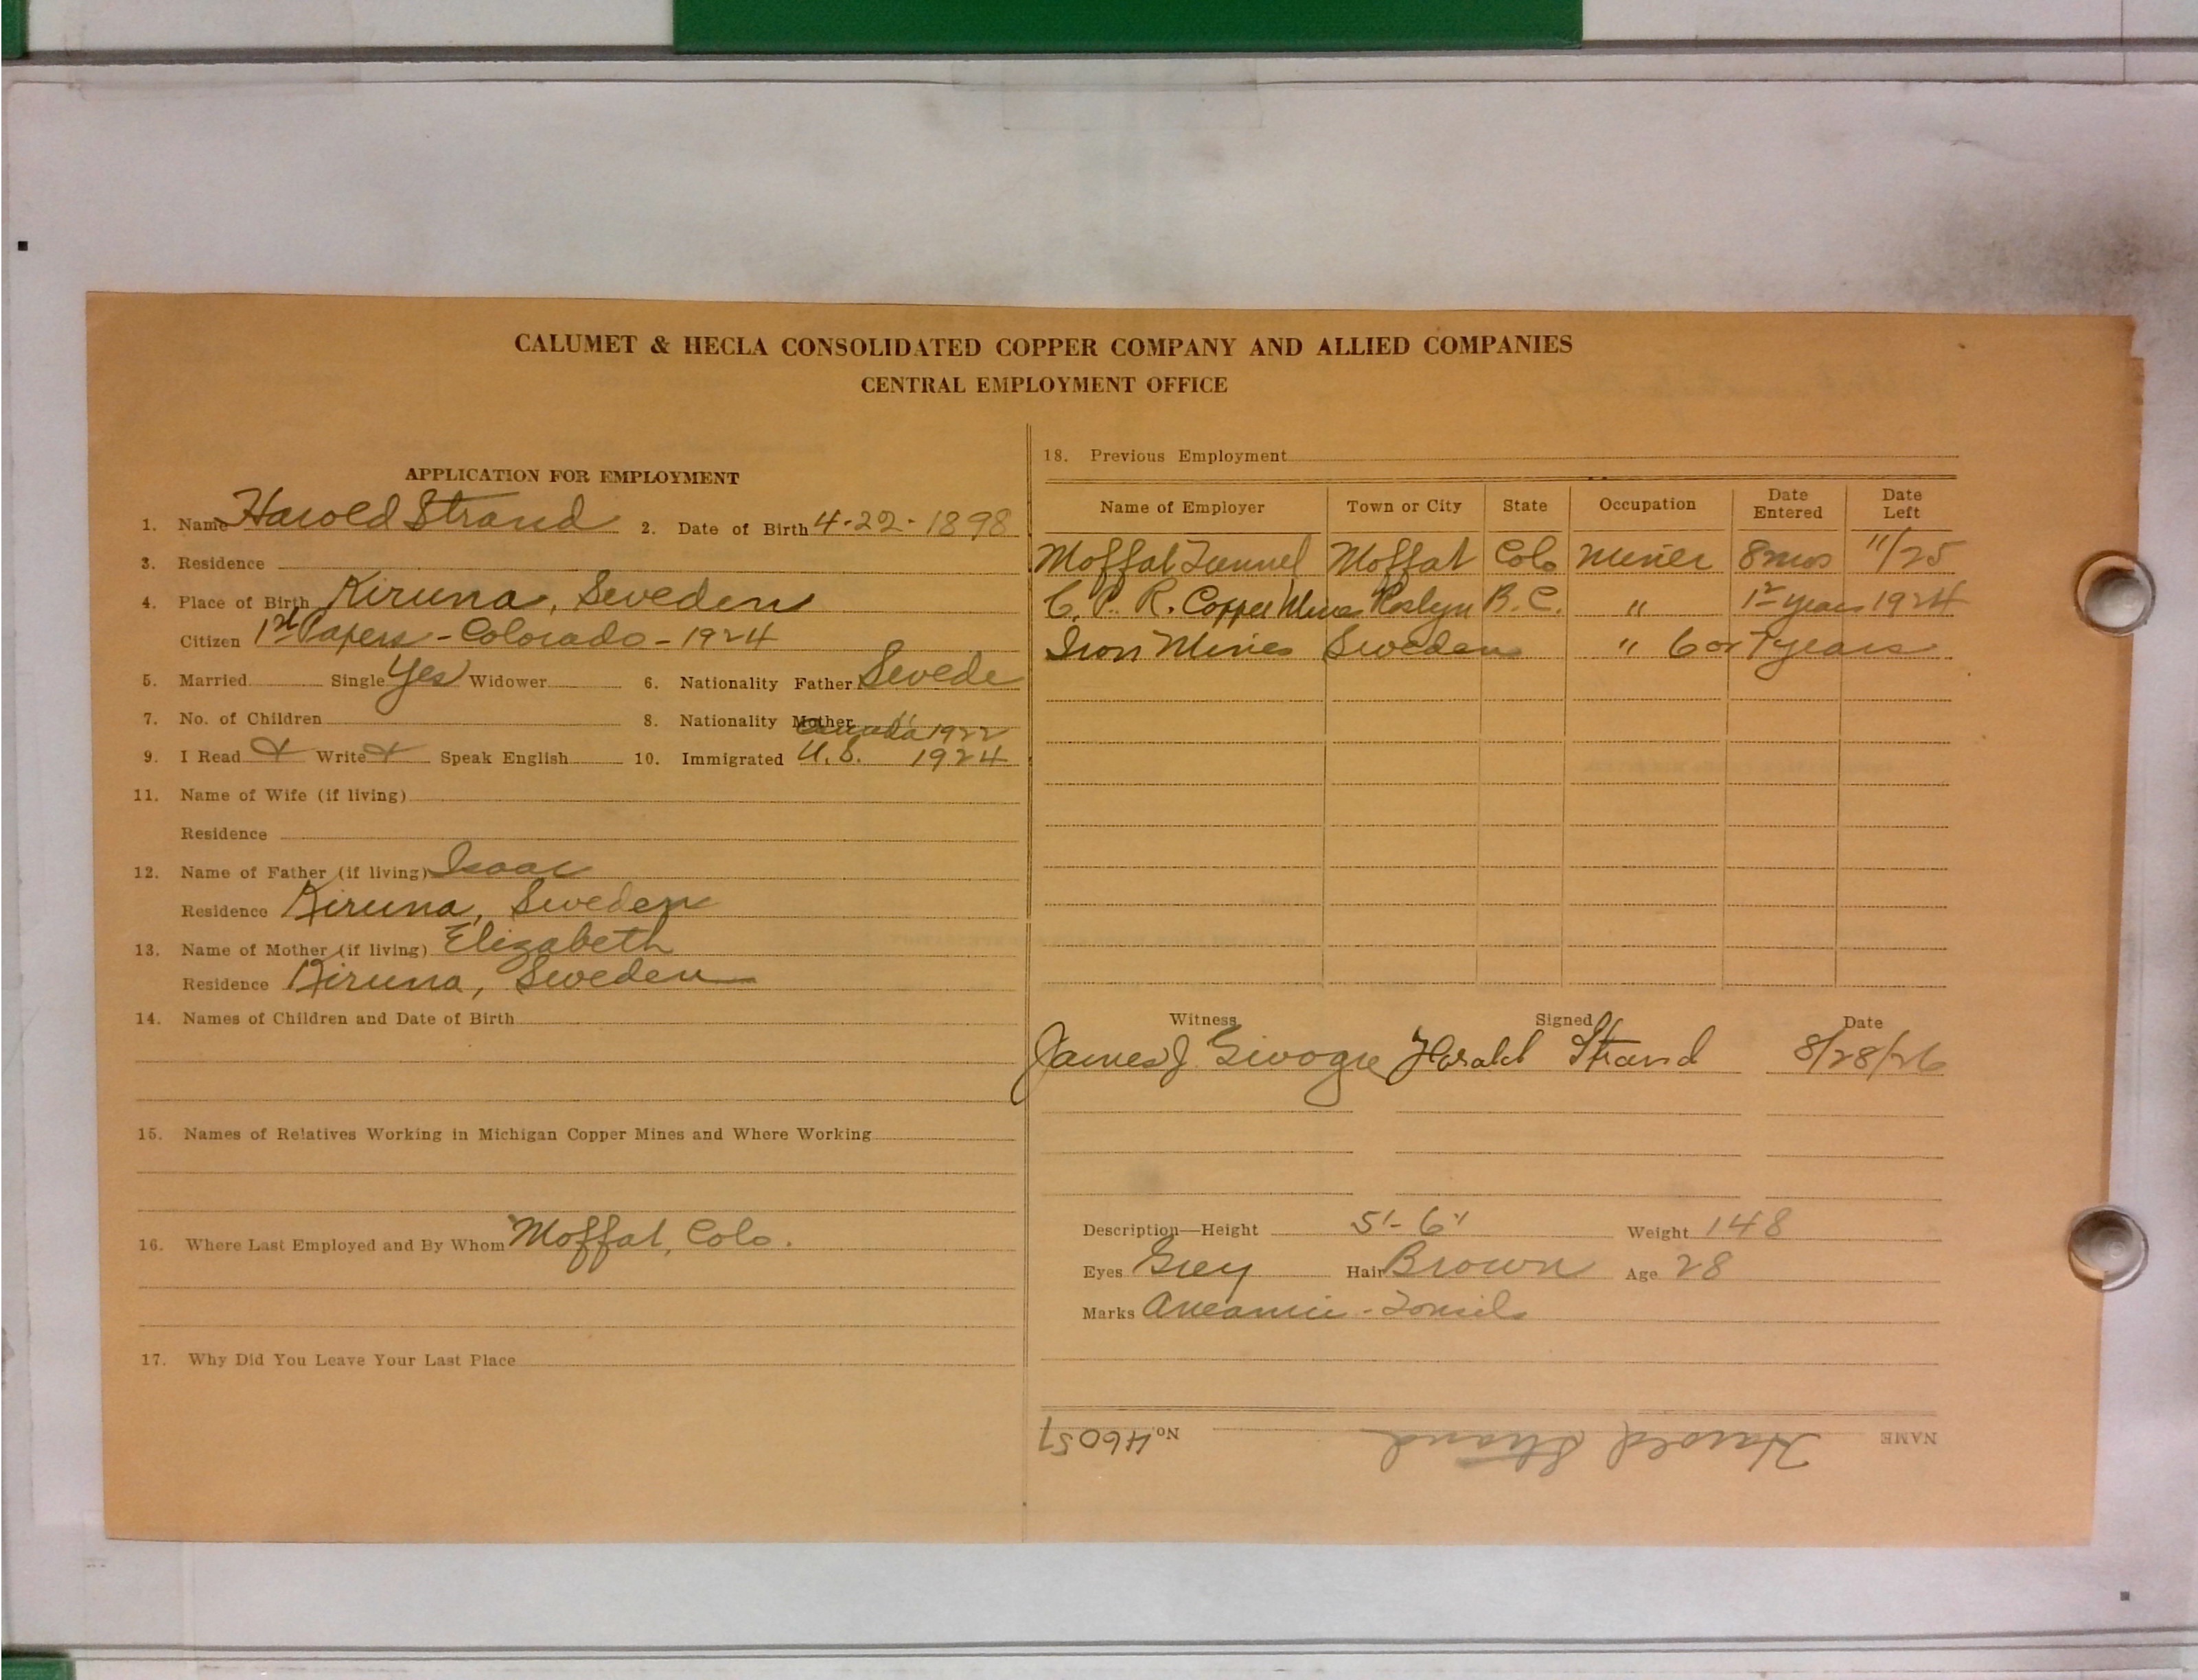 CALUMET & HECLA CONSOLIDATED COPPER COMPANY AND ALLIED COMPANIES
CENTRAL EMPLOYMENT OFFICE
APPLICATION FOR EMPLOYMENT
1. Name Harold Strand 2. Date of Birth 4-22-1898
3. Residence
4. Place of Birth Kiruna, Sweden
Citizen 1st Papers - Colorado - 1924
5. Married Single Yes Widower 6. Nationality Father Swede
7. No. of Children 8. Nationality Mother "
Canada 1922
9. I Read + Write + Speak English 10. Immigrated U.S. 1924
11. Name of Wife (if living)
Residence
12. Name of Father (if living) Isaac
Residence Kiruna, Sweden
13. Name of Mother (if living) Elizabeth
Residence Kiruna, Sweden
14. Names of Children and Date of Birth
15. Names of Relatives Working in Michigan Copper Mines and Where Working
16. Where Last Employed and By Whom Moffat, Colo.
17. Why Did You Leave Your Last Place
18. Previous Employment
Name of Employer Town or City State Occupation Date Entered Date Left
Moffat Tunnel Moffat Colo Miner 8 mos 11/25
C. P. R. Copper Mines Roslyn B. C. " years 1924
Iron Mines Sweden " 6 or 7 years
Witness Signed Date
James J. Harald Strand 8/28/26
Description—Height 5'-6" Weight 148
Eyes Grey Hair Brown Age 28
Marks Aneamic - Tonsils
NAME Harold Strand No. 46051